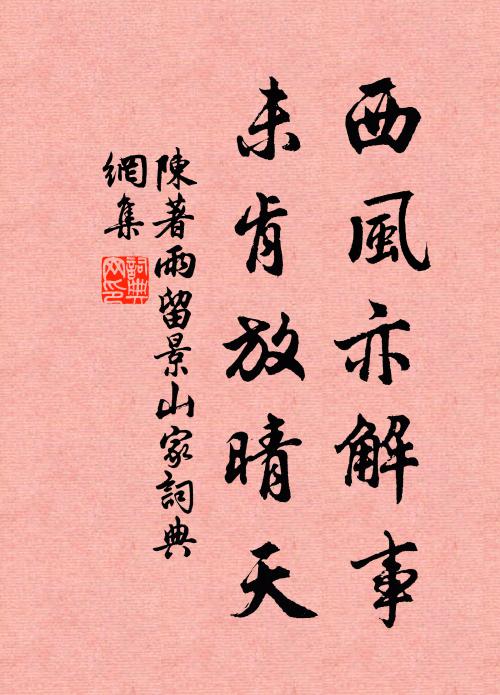 西風亦解事
未肯放晴天
陳著雨留景山家詞典
網集
詞典網印